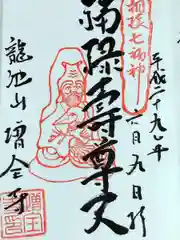 相模七福神
平成二十九年
六月九日
福禄寿尊天
龍池山 増全寺